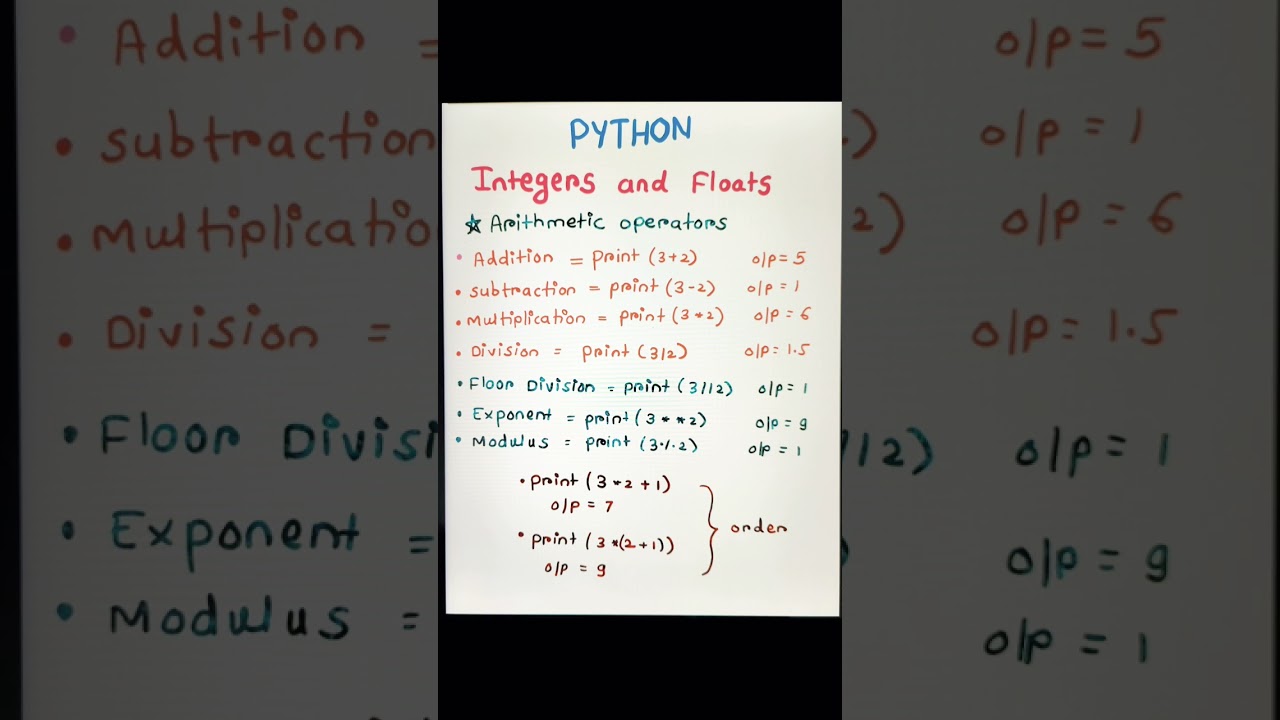 PYTHON
Integers and Floats
☆ Arithmetic operators
• Addition = print (3+2) o/p = 5
• subtraction = print (3-2) o/p = 1
• Multiplication = print (3*2) o/p = 6
• Division = print (3/2) o/p = 1.5
• Floor Division = print (3//2) o/p = 1
• Exponent = print (3**2) o/p = 9
• Modulus = print (3%2) o/p = 1
• print (3*2+1)
o/p = 7
• print (3*(2+1))
o/p = 9
} order